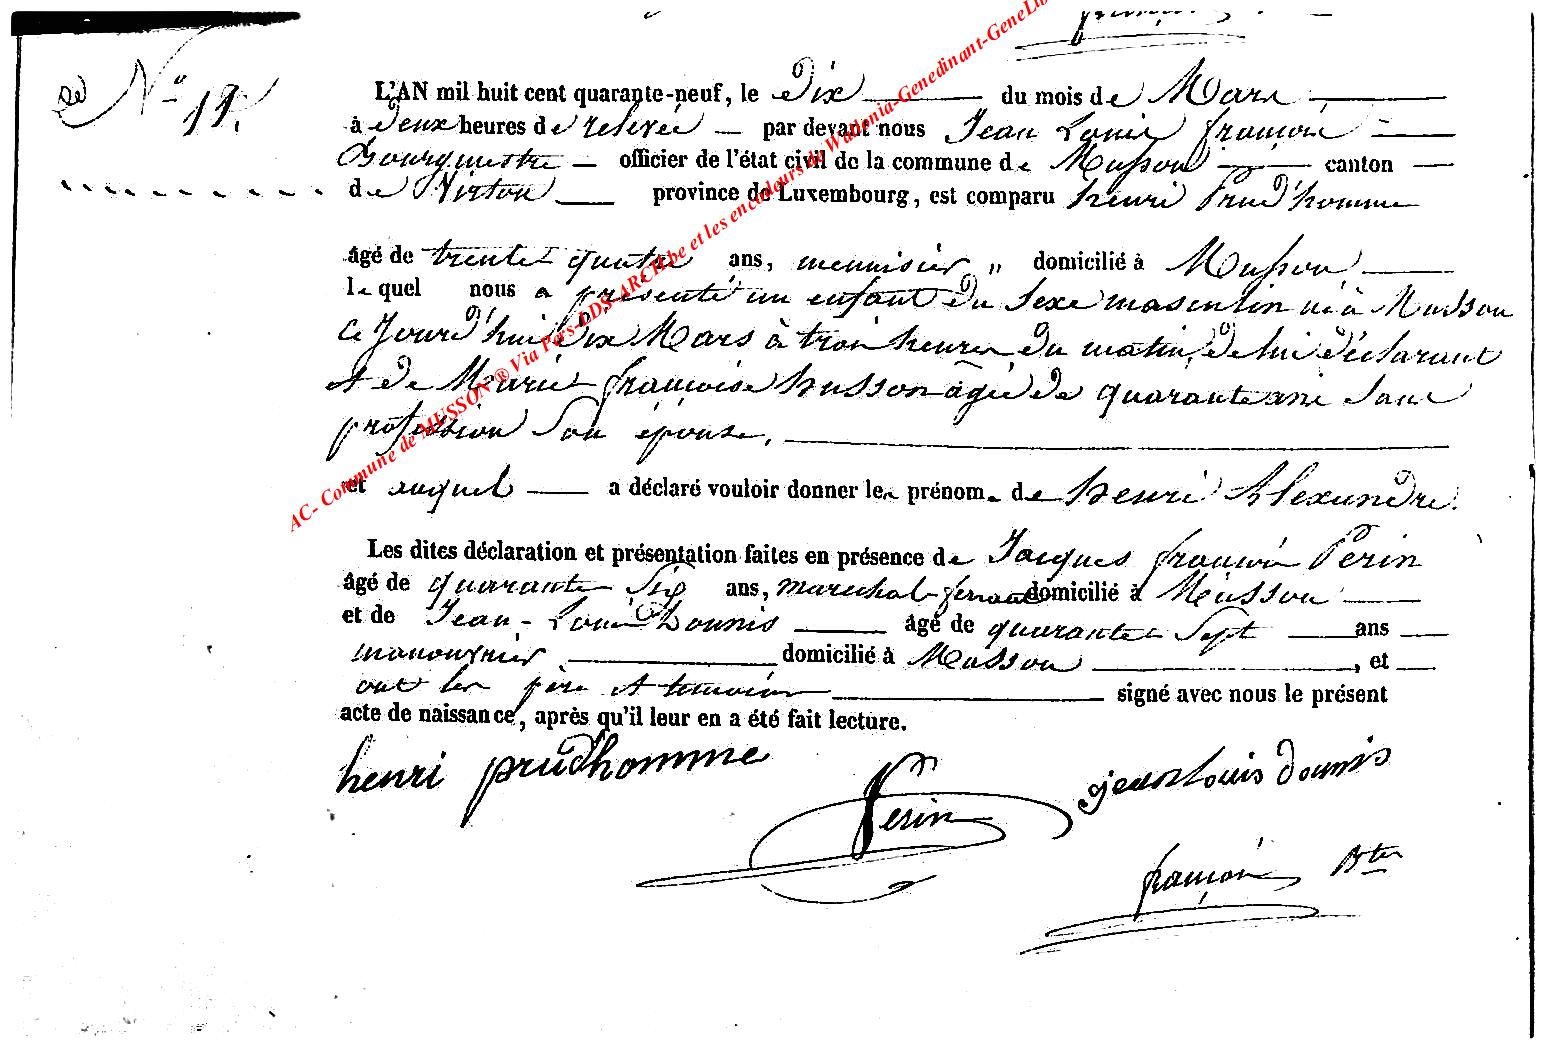 N° 19.
L'AN mil huit cent quarante-neuf, le dix du mois de Mars
à deux heures de relevée par devant nous Jean Louis françois
Bourgmestre officier de l'état civil de la commune de Musson canton
de Virton province de Luxembourg, est comparu henri Prud'homme
âgé de trente quatre ans, menuisier domicilié à Musson
lequel nous a présenté un enfant du sexe masculin né à Musson
Ce jourd'hui dix Mars à trois heures du matin, de lui déclarant
et de Marie françoise husson âgée de quarante ans sans
profession son épouse,
et auquel a déclaré vouloir donner les prénoms de henri Alexandre.
Les dites déclaration et présentation faites en présence de Jacques françois Perin
âgé de quarante six ans, marechal ferrant domicilié à Musson
et de Jean-Louis Dounis âgé de quarante sept ans
manouvrier domicilié à Musson, et
ont les père et témoins signé avec nous le présent
acte de naissance, après qu'il leur en a été fait lecture.
henri prudhomme
Perin
jean louis dounis
françois Bter
AC- Commune de MUSSON ® Via Pers-LDS-ARCH.be et les encodeurs de Wallonia-Genedinant-GeneLi